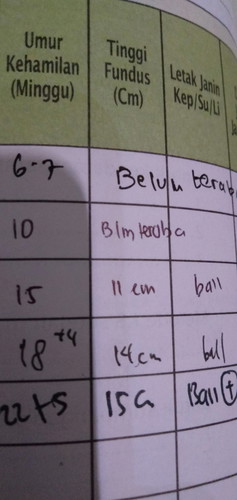 Umur Kehamilan (Minggu)
Tinggi Fundus (Cm)
Letak Janin Kep/Su/Li
6-7 Belum terab
10 Blm teraba
15 11 cm ball
18+4 14 cm ball
22+5 15 Ball +